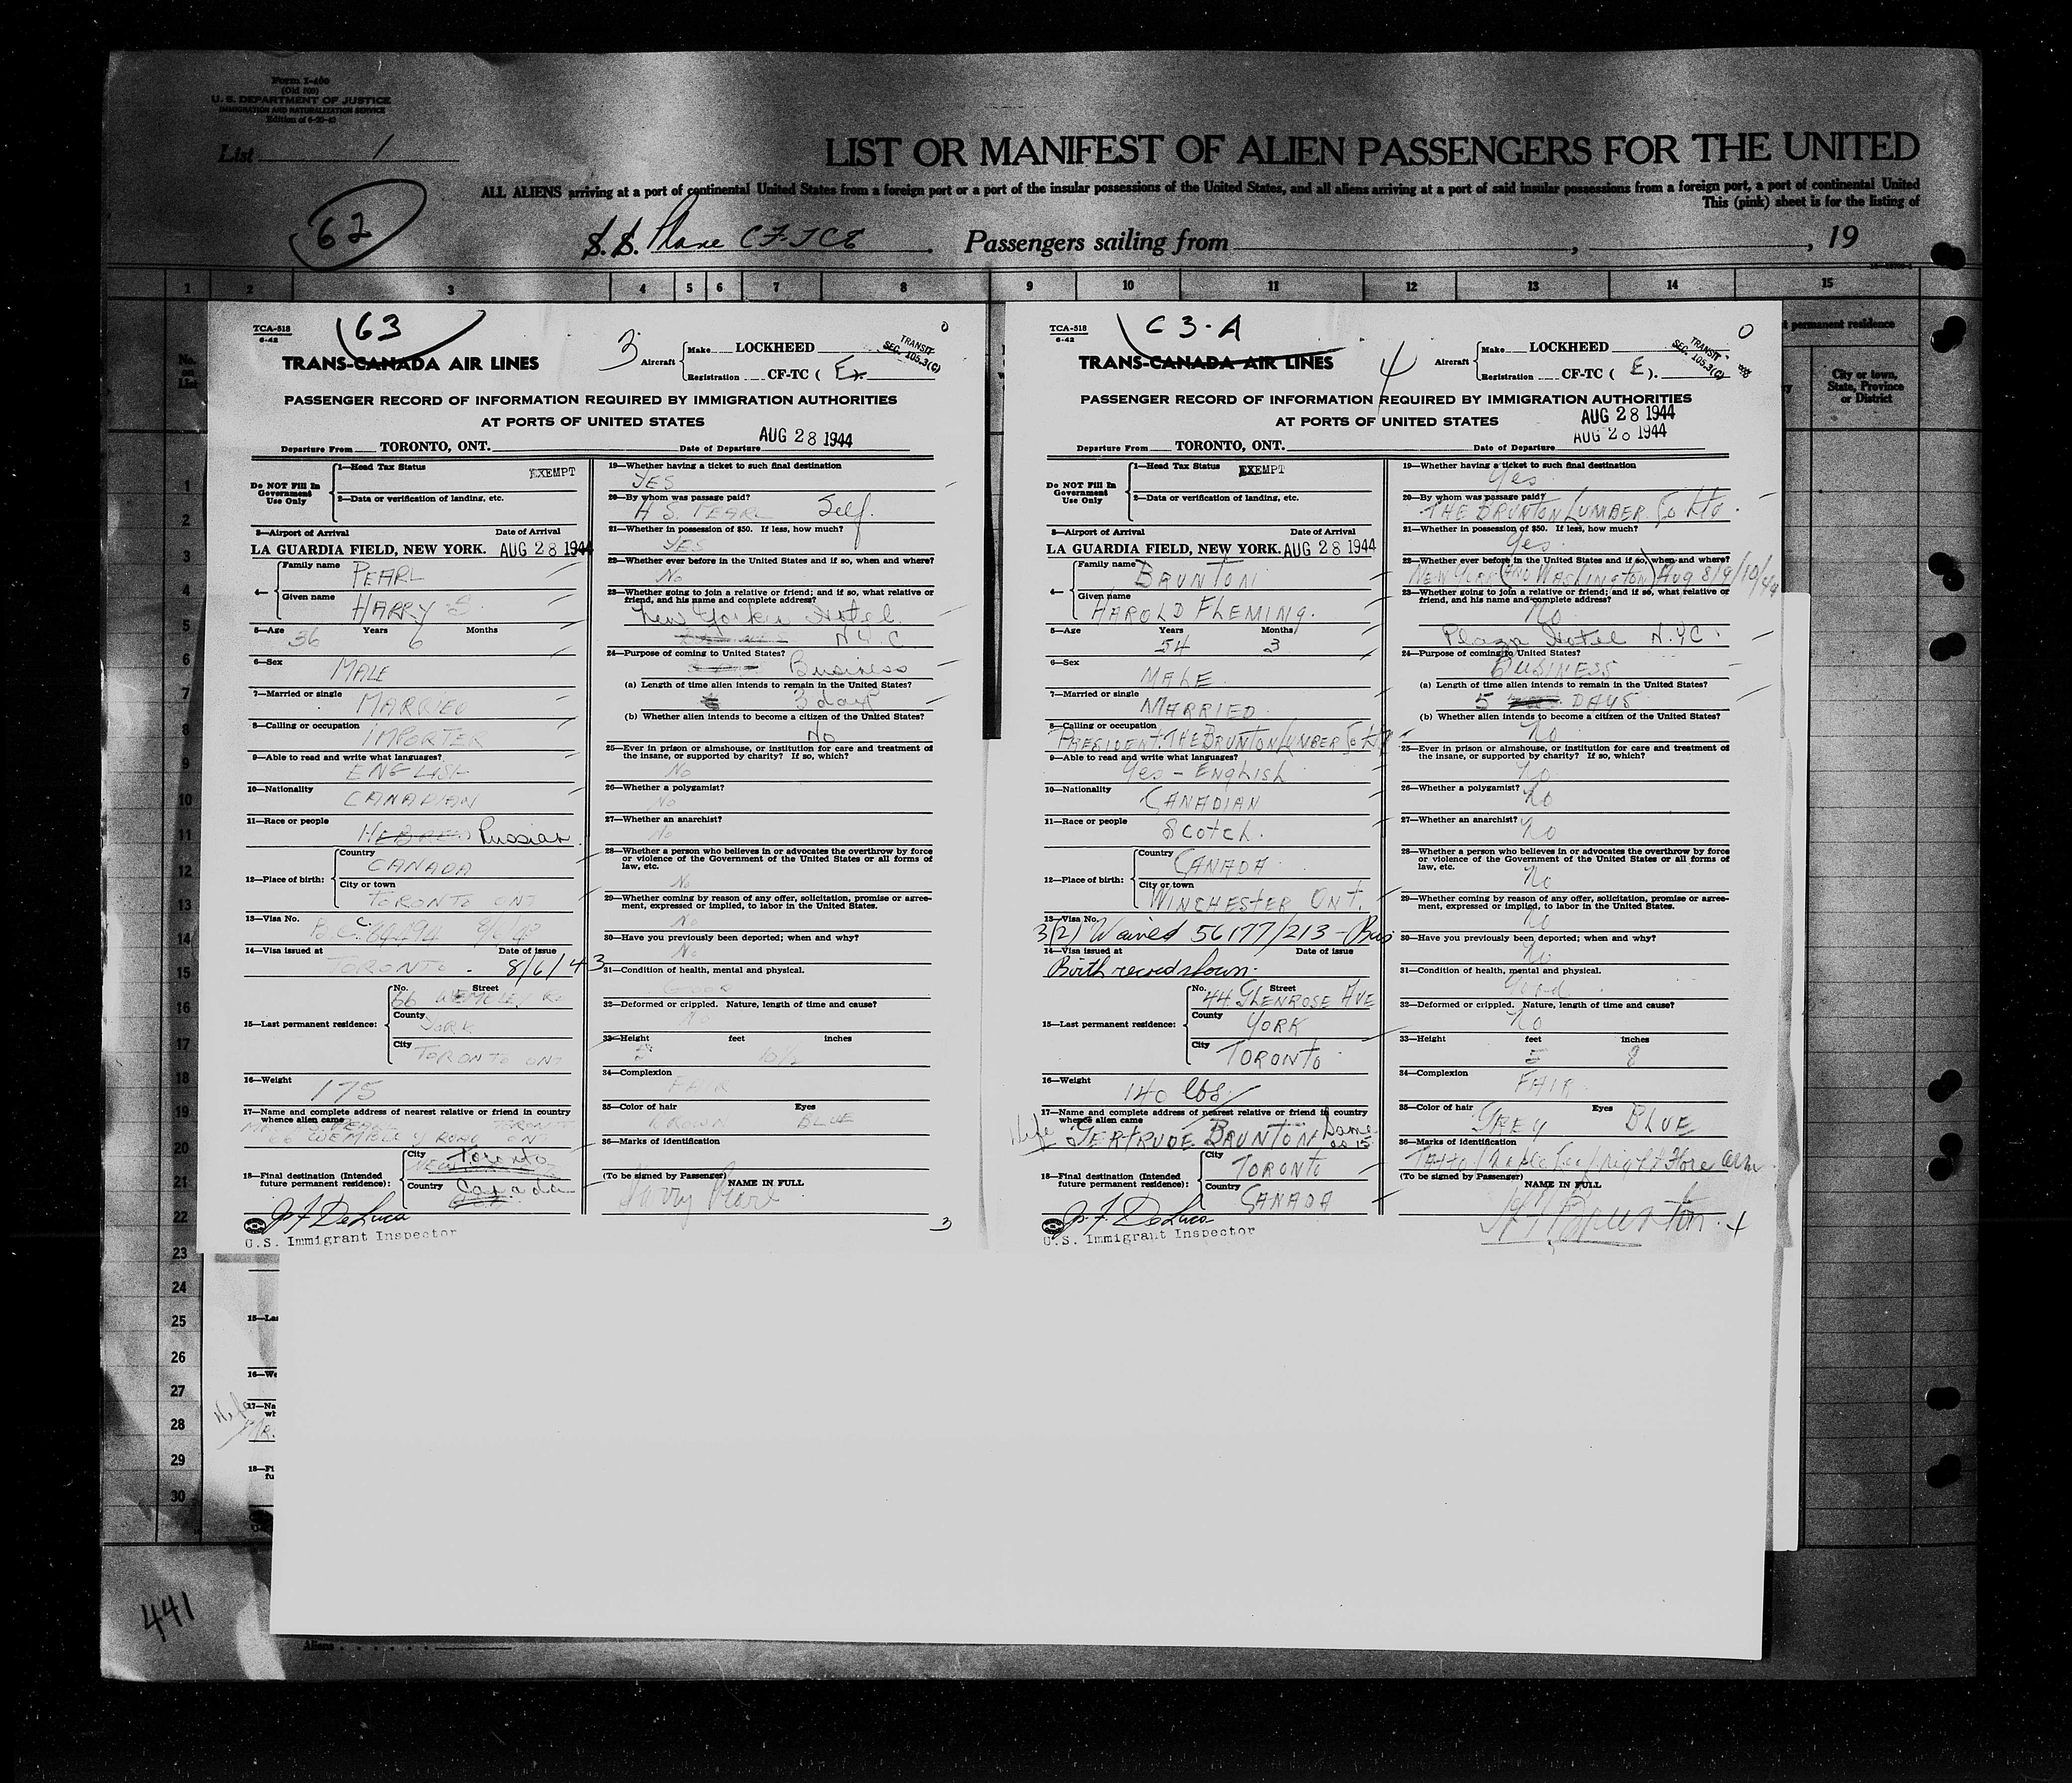 Form I-400
(Old 500)
U. S. DEPARTMENT OF JUSTICE
IMMIGRATION AND NATURALIZATION SERVICE
Edition of 6-20-42
List 1
62
LIST OR MANIFEST OF ALIEN PASSENGERS FOR THE UNITED
ALL ALIENS arriving at a port of continental United States from a foreign port or a port of the insular possessions of the United States, and all aliens arriving at a port of said insular possessions from a foreign port, a port of continental United
This (pink) sheet is for the listing of
S. S. Plane CF-TCE Passengers sailing from , , 19
1 2 3 4 5 6 7 8 9 10 11 12 13 14 15
TCA-518
6-42
63
TRANS-CANADA AIR LINES
3
Aircraft
Make LOCKHEED
Registration CF-TC ( E ).
TRANSIT
SEC. 105.3(C)
PASSENGER RECORD OF INFORMATION REQUIRED BY IMMIGRATION AUTHORITIES
AT PORTS OF UNITED STATES
Departure From TORONTO, ONT. Date of Departure AUG 28 1944
Do NOT Fill In
Government
Use Only
1—Head Tax Status EXEMPT
2—Data or verification of landing, etc.
3—Airport of Arrival Date of Arrival
LA GUARDIA FIELD, NEW YORK. AUG 28 1944
4—
Family name PEARL
Given name HARRY S.
5—Age 36 Years 6 Months
6—Sex MALE
7—Married or single MARRIED
8—Calling or occupation IMPORTER
9—Able to read and write what languages? ENGLISH
10—Nationality CANADIAN
11—Race or people HEBREW Russian
12—Place of birth:
Country CANADA
City or town TORONTO ONT
13—Visa No.
14—Visa issued at TORONTO Date of issue 8/6/43
15—Last permanent residence:
No. Street 66 WEMBLEY RD
County YORK
City TORONTO ONT
16—Weight 175
17—Name and complete address of nearest relative or friend in country
whence alien came
66 WEMBLEY ROAD ONT
18—Final destination (Intended
future permanent residence):
City Toronto
Country Canada
J. F. DeLuca
U.S. Immigrant Inspector
19—Whether having a ticket to such final destination
YES
20—By whom was passage paid?
H S. PEARL Self.
21—Whether in possession of $50. If less, how much?
YES
22—Whether ever before in the United States and if so, when and where?
No
23—Whether going to join a relative or friend; and if so, what relative or
friend, and his name and complete address?
New Yorker Hotel
N.Y.C
24—Purpose of coming to United States?
Business
(a) Length of time alien intends to remain in the United States?
3 days
(b) Whether alien intends to become a citizen of the United States?
No
25—Ever in prison or almshouse, or institution for care and treatment of
the insane, or supported by charity? If so, which?
No
26—Whether a polygamist?
No
27—Whether an anarchist?
No
28—Whether a person who believes in or advocates the overthrow by force
or violence of the Government of the United States or all forms of
law, etc.
No
29—Whether coming by reason of any offer, solicitation, promise or agree-
ment, expressed or implied, to labor in the United States.
No
30—Have you previously been deported; when and why?
No
31—Condition of health, mental and physical.
GOOD
32—Deformed or crippled. Nature, length of time and cause?
No
33—Height feet inches
5 10½
34—Complexion
FAIR
35—Color of hair Eyes
BROWN BLUE
36—Marks of identification
(To be signed by Passenger) NAME IN FULL
Harry Pearl
3
TCA-518
6-42
63-A
TRANS-CANADA AIR LINES
4
Aircraft
Make LOCKHEED
Registration CF-TC ( E ).
TRANSIT
SEC. 105.3(C)
PASSENGER RECORD OF INFORMATION REQUIRED BY IMMIGRATION AUTHORITIES
AT PORTS OF UNITED STATES
AUG 28 1944
Departure From TORONTO, ONT. Date of Departure AUG 28 1944
Do NOT Fill In
Government
Use Only
1—Head Tax Status EXEMPT
2—Data or verification of landing, etc.
3—Airport of Arrival Date of Arrival
LA GUARDIA FIELD, NEW YORK. AUG 28 1944
4—
Family name BRUNTON
Given name HAROLD FLEMING.
5—Age Years 54 Months 3
6—Sex MALE
7—Married or single MARRIED
8—Calling or occupation
PRESIDENT. THE BRUNTON LUMBER Co Ltd
9—Able to read and write what languages?
Yes - ENGLISH
10—Nationality CANADIAN
11—Race or people SCOTCH.
12—Place of birth:
Country CANADA
City or town WINCHESTER ONT.
13—Visa No.
3(2) Waived 56177/213 - Bus
14—Visa issued at Date of issue
Birth record shown.
15—Last permanent residence:
No. Street 44 GLENROSE AVE
County YORK
City TORONTO
16—Weight 140 lbs.
17—Name and complete address of nearest relative or friend in country
whence alien came
Wife GERTRUDE BRUNTON Same as 15
18—Final destination (Intended
future permanent residence):
City TORONTO
Country CANADA
J. F. DeLuca
U.S. Immigrant Inspector
19—Whether having a ticket to such final destination
Yes
20—By whom was passage paid?
THE BRUNTON LUMBER Co Ltd.
21—Whether in possession of $50. If less, how much?
Yes
22—Whether ever before in the United States and if so, when and where?
NEW YORK (AND WASHINGTON) Aug 8/9/10/44
23—Whether going to join a relative or friend; and if so, what relative or
friend, and his name and complete address?
No
Plaza Hotel N.Y.C.
24—Purpose of coming to United States?
BUSINESS
(a) Length of time alien intends to remain in the United States?
5 DAYS
(b) Whether alien intends to become a citizen of the United States?
No
25—Ever in prison or almshouse, or institution for care and treatment of
the insane, or supported by charity? If so, which?
No
26—Whether a polygamist? No
27—Whether an anarchist? No
28—Whether a person who believes in or advocates the overthrow by force
or violence of the Government of the United States or all forms of
law, etc.
No
29—Whether coming by reason of any offer, solicitation, promise or agree-
ment, expressed or implied, to labor in the United States.
No
30—Have you previously been deported; when and why?
No
31—Condition of health, mental and physical.
Good
32—Deformed or crippled. Nature, length of time and cause?
No
33—Height feet inches
5 8
34—Complexion
FAIR
35—Color of hair Eyes
GREY BLUE
36—Marks of identification
Tattoo Maple Leaf right Fore arm
(To be signed by Passenger) NAME IN FULL
H F Brunton
4
permanent residence
City or town,
State, Province
or District
No.
on
List
1
2
3
4
5
6
7
8
9
10
11
12
13
14
15
16
17
18
19
20
21
22
23
24
25
26
27
28
29
30
15—Las
16—We
17—Na
wh
Wife
Mr.
18—Fi
fu
441
Aliens